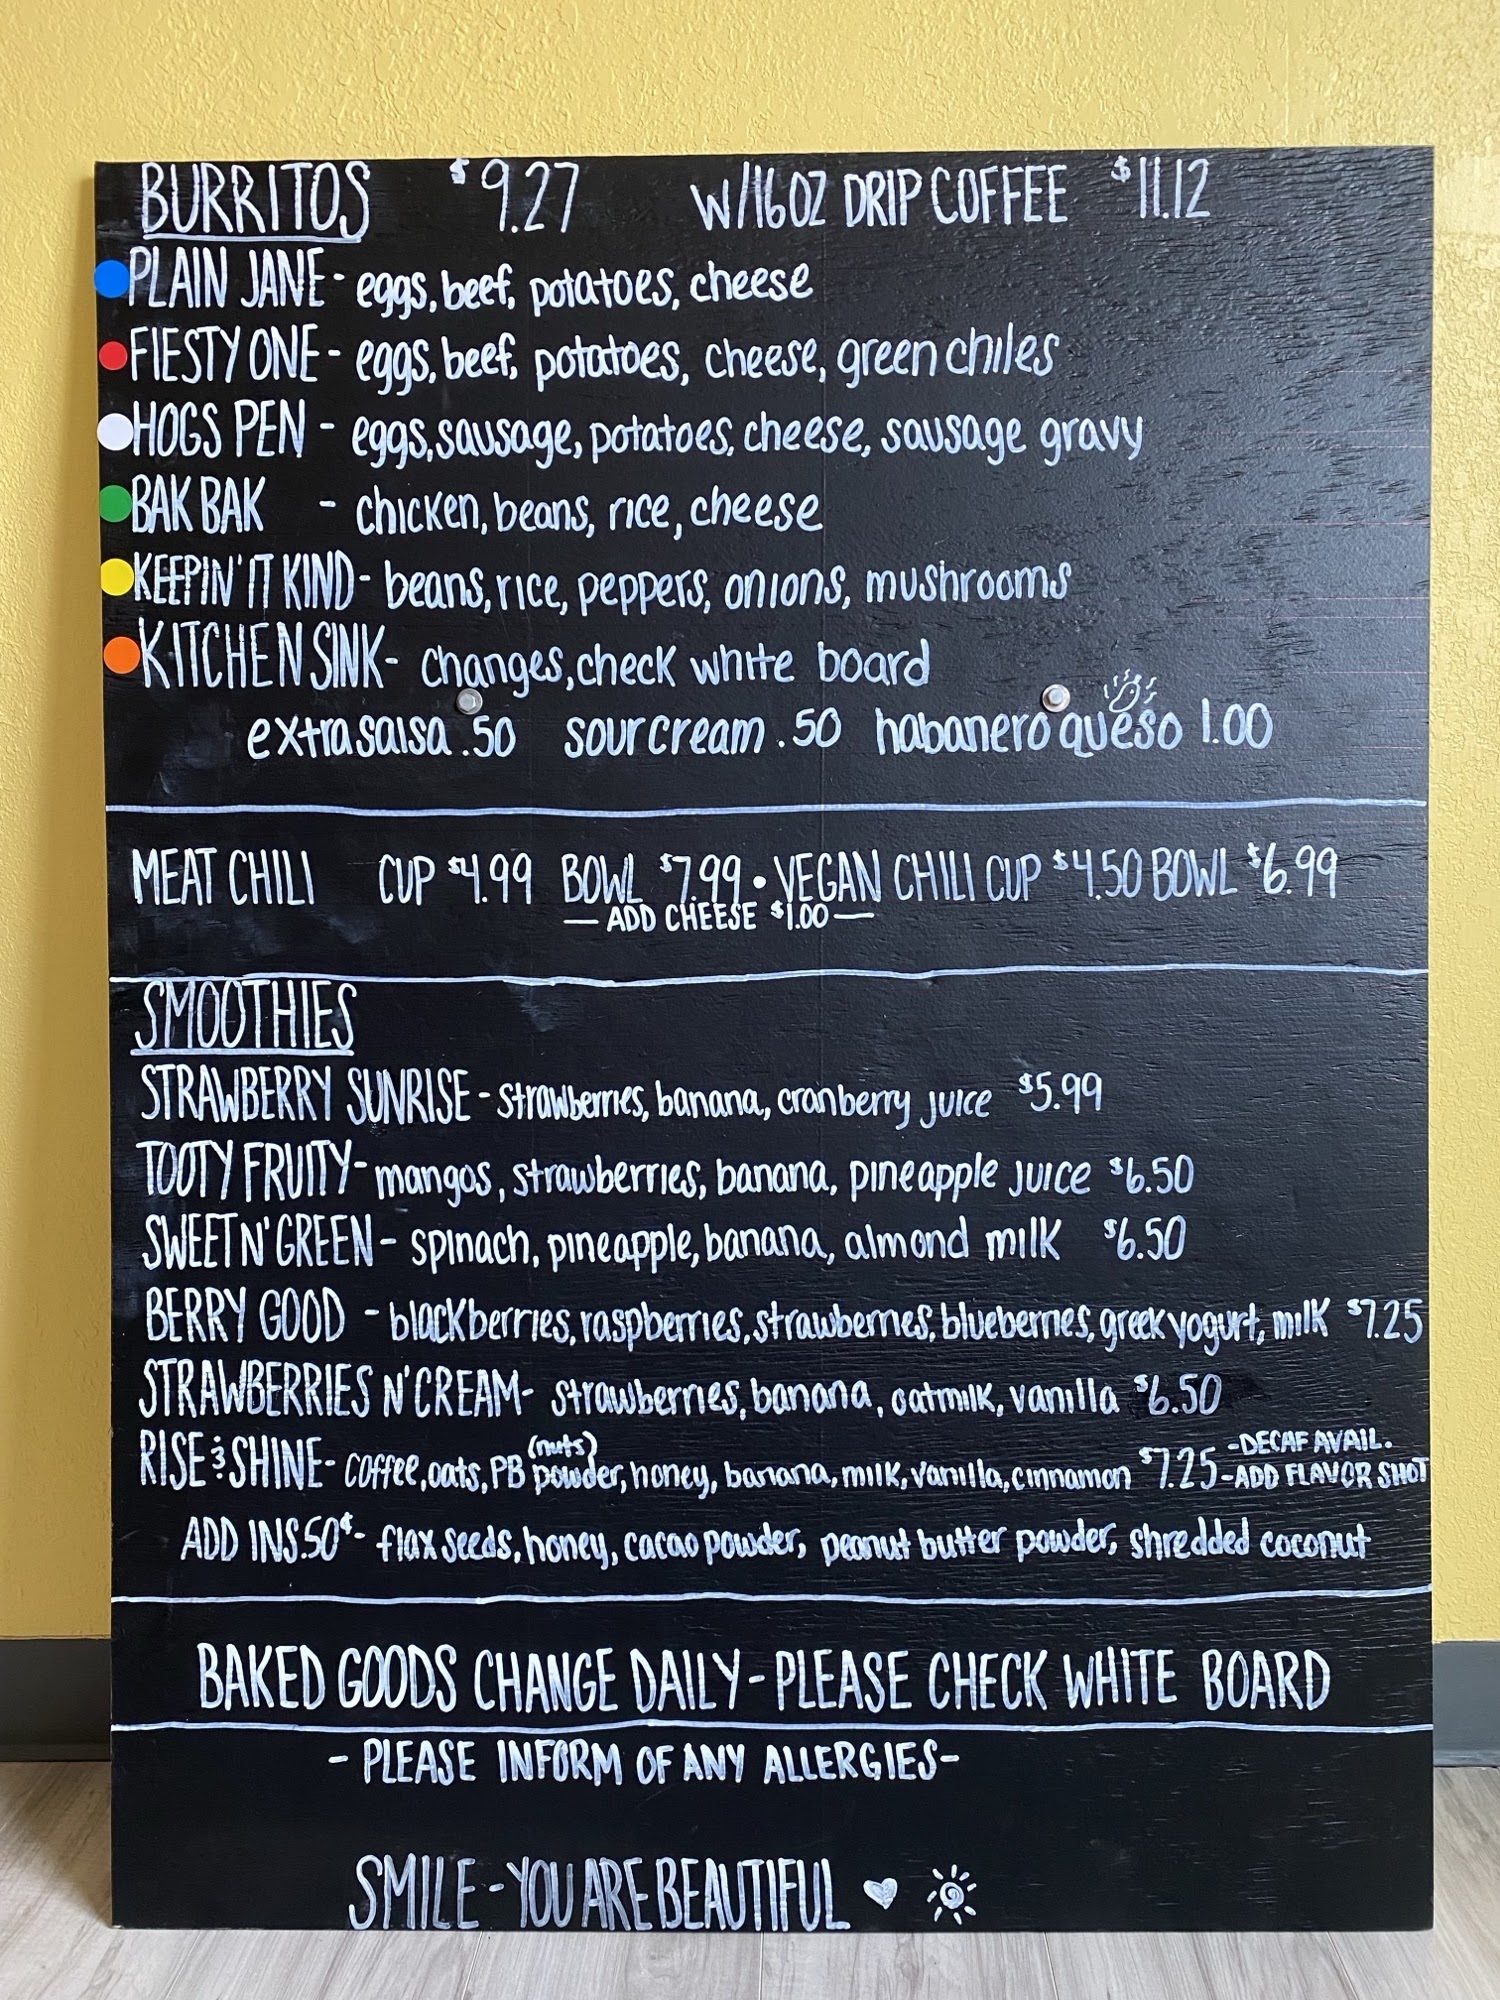 BURRITOS $9.27 W/16OZ DRIP COFFEE $11.12
PLAIN JANE - eggs, beef, potatoes, cheese
FIESTY ONE - eggs, beef, potatoes, cheese, green chiles
HOGS PEN - eggs, sausage, potatoes, cheese, sausage gravy
BAK BAK - chicken, beans, rice, cheese
KEEPIN' IT KIND - beans, rice, peppers, onions, mushrooms
KITCHEN SINK - changes, check white board
extra salsa .50 sour cream .50 habanero queso 1.00
MEAT CHILI CUP $4.99 BOWL $7.99 • VEGAN CHILI CUP $4.50 BOWL $6.99
— ADD CHEESE $1.00 —
SMOOTHIES
STRAWBERRY SUNRISE - strawberries, banana, cranberry juice $5.99
TOOTY FRUITY - mangos, strawberries, banana, pineapple juice $6.50
SWEET N' GREEN - spinach, pineapple, banana, almond milk $6.50
BERRY GOOD - blackberries, raspberries, strawberries, blueberries, greek yogurt, milk $7.25
STRAWBERRIES N' CREAM - strawberries, banana, oatmilk, vanilla $6.50
RISE & SHINE - coffee, oats, PB (nuts) powder, honey, banana, milk, vanilla, cinnamon $7.25 - DECAF AVAIL.
- ADD FLAVOR SHOT
ADD INS .50¢ - flax seeds, honey, cacao powder, peanut butter powder, shredded coconut
BAKED GOODS CHANGE DAILY - PLEASE CHECK WHITE BOARD
- PLEASE INFORM OF ANY ALLERGIES -
SMILE - YOU ARE BEAUTIFUL